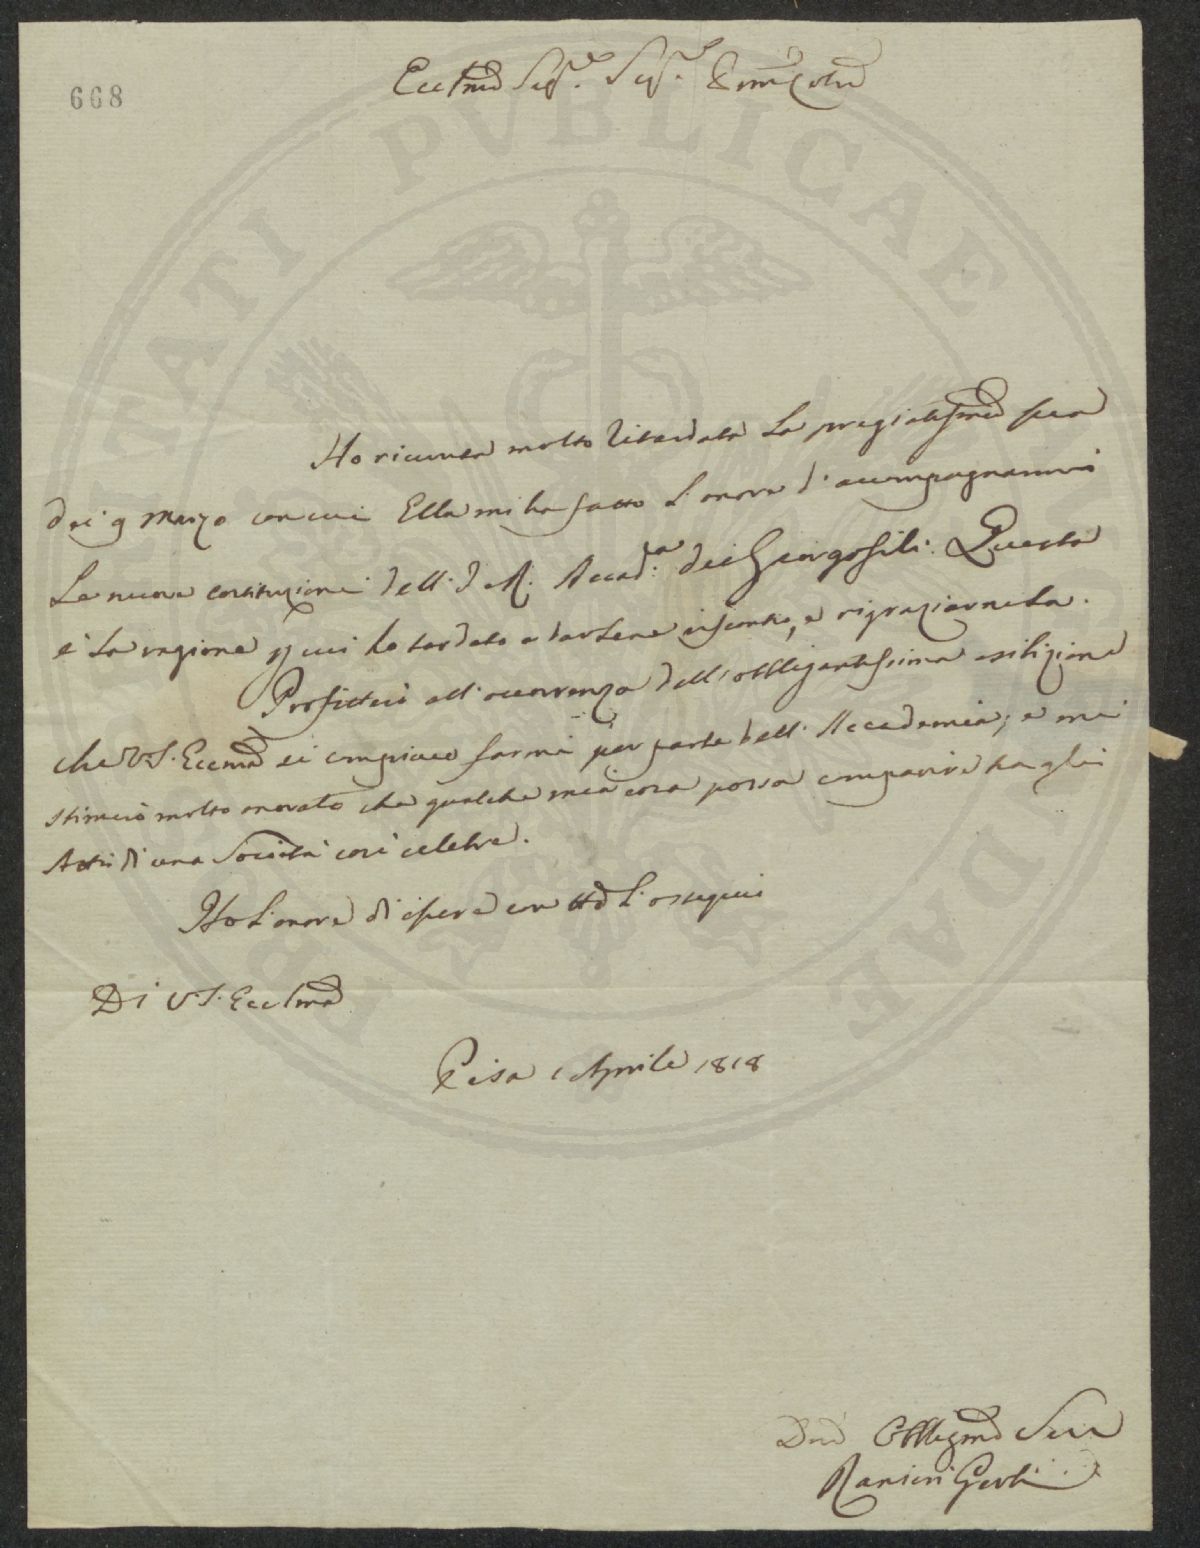 668
Ecc.mo Sig.re Sig.re P.rone Col.mo
Ho ricevuta molto ritardata la pregiatissma sua
dei 9 Marzo con cui Ella mi ha fatto l'onore d'accompagnarmi
le nuove costituzioni dell' I. e R. Accad.a dei Georgofili. Questa
è la ragione p cui ho tardato a dartene riscontro, e ringraziarnela.
Profitterò all'occorrenza dell'obbligantissima esibizione
che V.S. Eccma si compiace farmi per parte dell'Accademia; e mi
stimerò molto onorato che qualche mia cosa possa comparire tra gli
Atti di una Società così celebre.
Ho l'onore di essere con tto l'ossequio
Di V.S. Ecc.ma
Pisa 1 Aprile 1818
Dmo Obbligmo Serv
Ranieri Gerbi
PVBLICAE